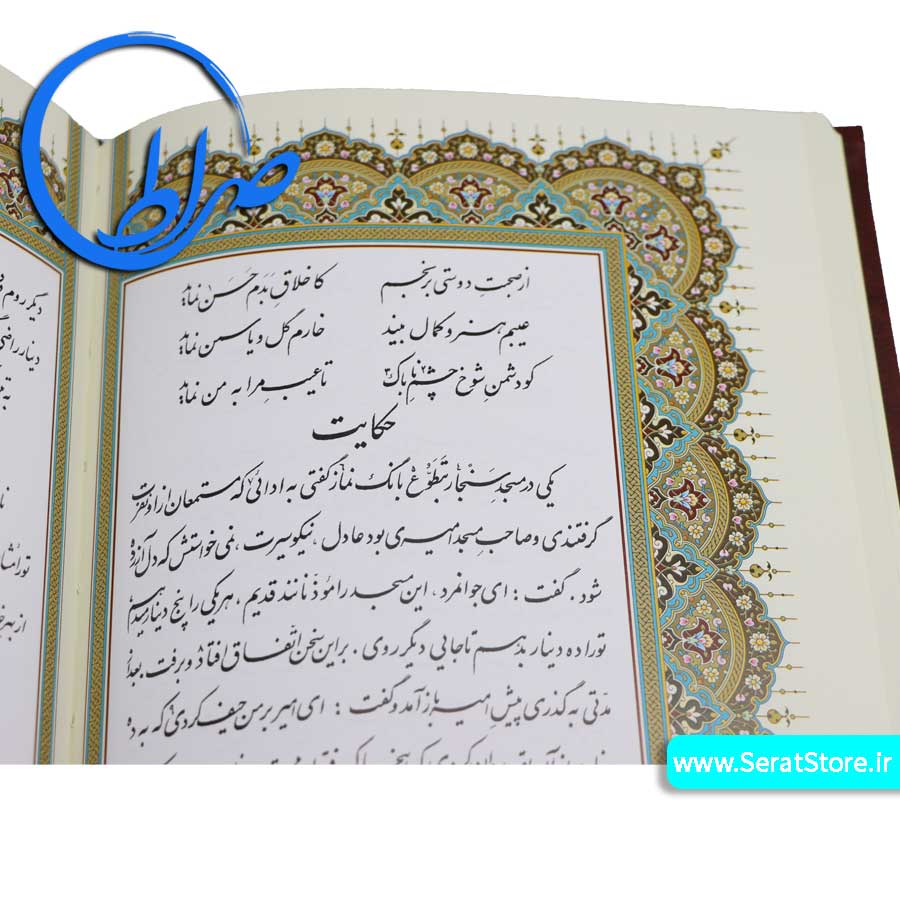 صراط
از صحبتِ دوستی برنجم کاخلاقِ بَدَم حَسَن نماید
عیبم هنر و کمال بیند خارم گل و یاسمن نماید
کو دشمنِ شوخ چشمِ ناباک تا عیبِ مرا به من نماید
حکایت
یکی در مسجدِ سنجار بتطوّع بانگ نماز گفتی به ادائی که مستمعان از او نفرت
گرفتندی و صاحبِ مسجد امیری بود عادل ، نیکو سیرت ، نمی خواستش که دل آزرده
شود . گفت : ای جوانمرد ، این مسجد را مؤذنانند قدیم ، هر یکی را پنج دینار میدهم
تو را ده دینار بدهم تا جایی دیگر روی . بر این سخن اتّفاق افتاد و برفت بعد از
مدّتی به گذری پیشِ امیر باز آمد و گفت : ای امیر بر من حیف کردی که به ده
دیگر روم
دینار راضی
www.SeratStore.ir